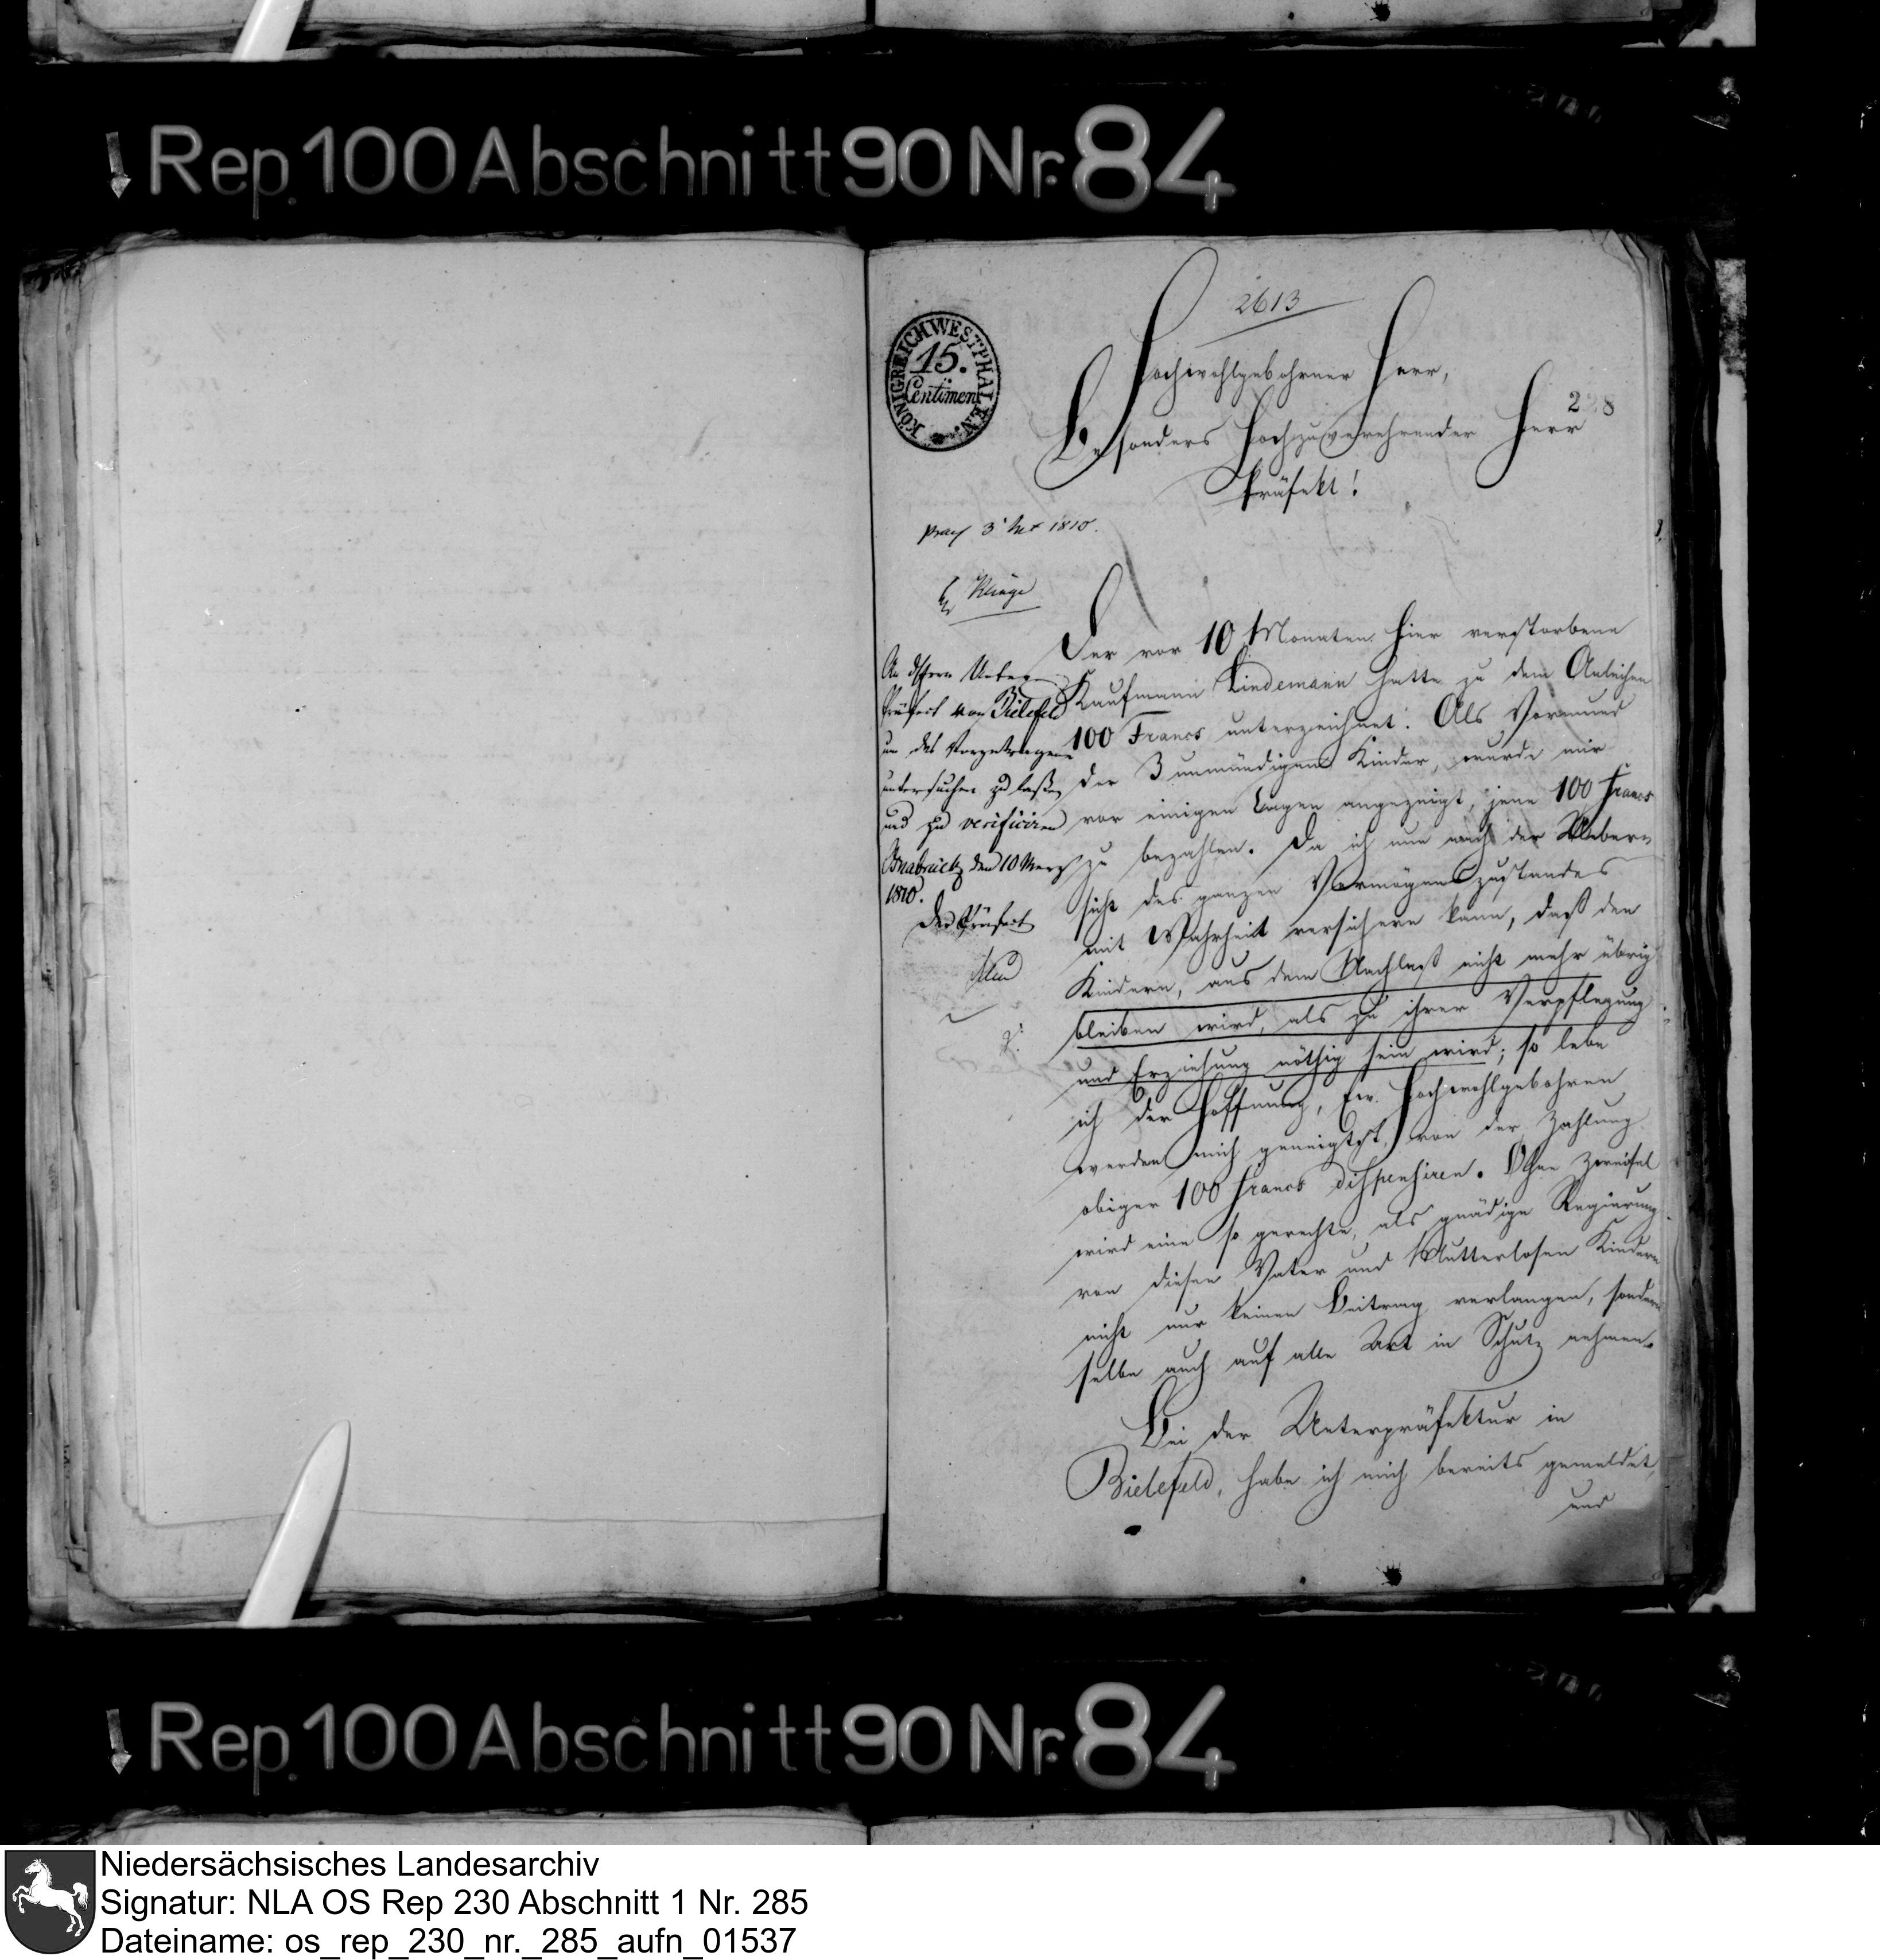 Rep. 100 Abschnitt 90 Nr. 84
2613
KÖNIGREICH WESTPHALEN.
15.
Centimen
Hochwohlgebohrner Herr,
228
Besonders Hochzuverehrender Herr
Präfekt!
1810.
Der vor 10 Monaten hier verstorbene
Kaufmann Lindemann hatte zu dem Anleihen
100 Francs unterzeichnet. Als Vormund
der 3 unmündigen Kinder, wurde mir
vor einigen Tagen angezeigt, jene 100 Francs
zu bezahlen. Da ich nun nach der Ueber-
sicht des ganzen Vermögenszustandes
mit Wahrheit versichern kann, daß den
Kindern, aus dem Nachlaß nicht mehr übrig
bleiben wird, als zu ihrer Verpflegung
und Erziehung nöthig sein wird; so lebe
ich der Hoffnung, Ew. Hochwohlgebohren
werden mich geneigtst, von der Zahlung
obiger 100 Francs dispensiren. Ohne Zweifel
wird eine so gerechte, als gnädige Regierung
von diesen Vater und Mutterlosen Kindern
nicht nur keinen Beitrag verlangen, sondern
selbe auch auf alle Art in Schutz nehmen.
Bei der Unterpräfektur in
Bielefeld, habe ich mich bereits gemeldet,
und
An Herrn Unter-
Präfect von Bielefeld
um das Vorgetragene
untersuchen zu laßen
und zu verificiren
Osnabrück den 10 Merz
1810.
Der Präfect
Rep. 100 Abschnitt 90 Nr. 84
Niedersächsisches Landesarchiv
Signatur: NLA OS Rep 230 Abschnitt 1 Nr. 285
Dateiname: os_rep_230_nr._285_aufn_01537